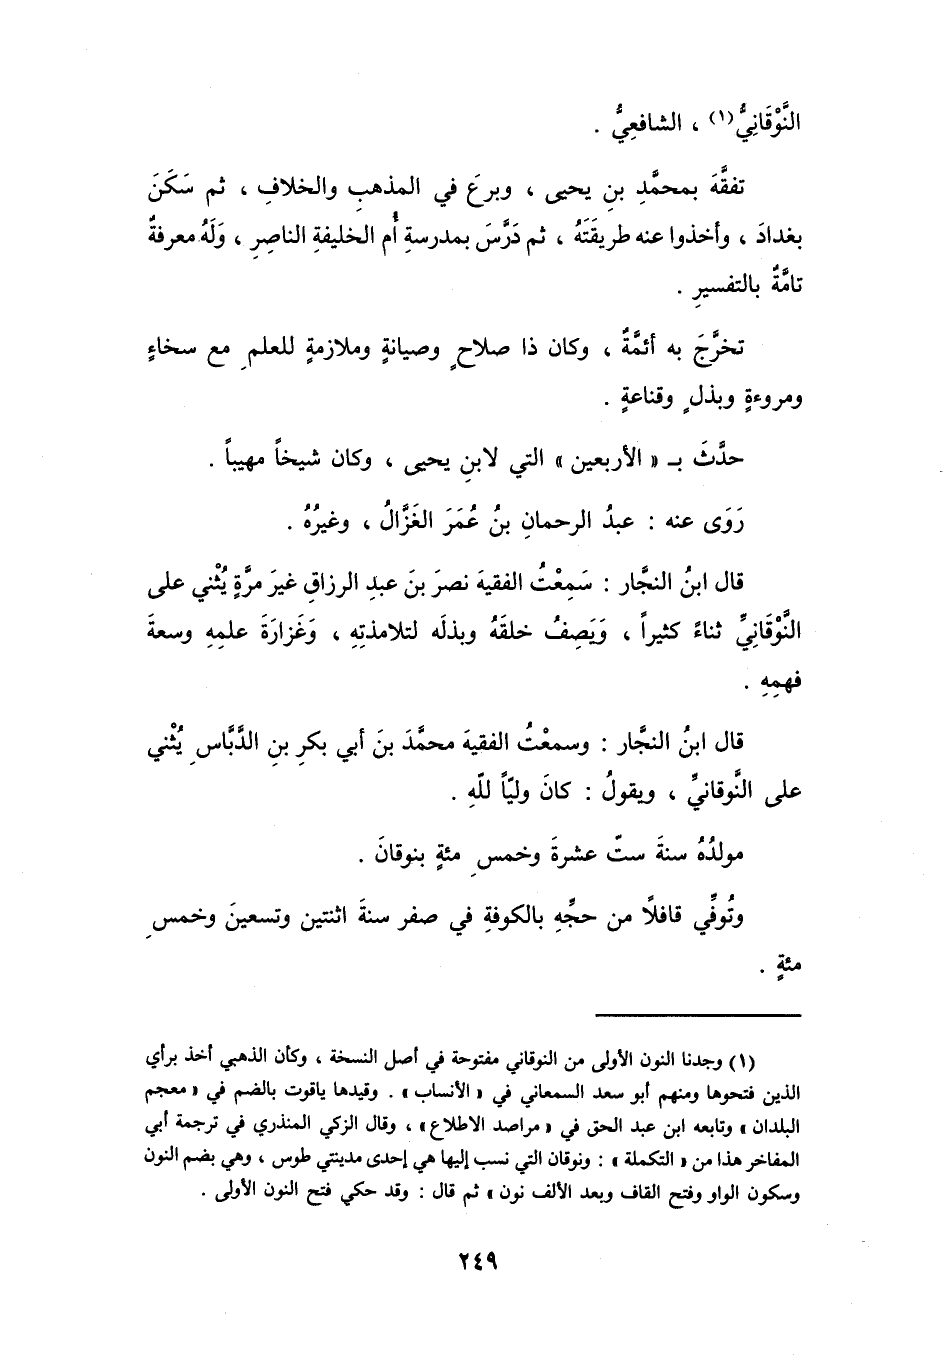 النَّوْقَانِيُّ(١) ، الشافعِيُّ .
تفقَّهَ بمحمَّدِ بنِ يحيى ، وبرعَ في المذهبِ والخلافِ ، ثم سَكَنَ
بغدادَ ، وأخذوا عنه طريقَتَهُ ، ثم دَرَّسَ بمدرسةِ أُم الخليفةِ الناصِرِ ، وَلَهُ معرفةٌ
تامَّةٌ بالتفسيرِ .
تخرَّجَ به أئمَّةٌ ، وكان ذا صلاحٍ وصيانةٍ وملازمةٍ للعلمِ مع سخاءٍ
ومروءةٍ وبذلٍ وقناعةٍ .
حدَّثَ بـ « الأربعين » التي لابنِ يحيى ، وكان شيخاً مهيباً .
رَوَى عنه : عبدُ الرحمانِ بنُ عُمَرَ الغَزَّالُ ، وغيرُهُ .
قال ابنُ النجَّار : سَمِعْتُ الفقيهَ نصرَ بنَ عبدِ الرزاقِ غيرَ مرَّةٍ يُثْني على
النَّوْقَانِيِّ ثناءً كثيراً ، وَيَصِفُ خلقَهُ وبذلَه لتلامذتِهِ ، وَغَزارَةَ علمِهِ وسعةَ
فهمِهِ .
قال ابنُ النجَّار : وسمعْتُ الفقيهَ محمَّدَ بنَ أبي بكرِ بنِ الدَّبَّاسِ يُثْني
على النَّوقانيِّ ، ويقولُ : كانَ وليّاً للّهِ .
مولدُهُ سنةَ ستّ عشرةَ وخمسِ مئةٍ بنوقانَ .
وتُوفِّي قافلًا من حجِّهِ بالكوفةِ في صفر سنةَ اثنتين وتسعينَ وخمسِ
مئةٍ .
(١) وجدنا النون الأولى من النوقاني مفتوحة في أصل النسخة ، وكأن الذهبي أخذ برأي
الذين فتحوها ومنهم أبو سعد السمعاني في « الأنساب » . وقيدها ياقوت بالضم في « معجم
البلدان » وتابعه ابن عبد الحق في « مراصد الاطلاع » ، وقال الزكي المنذري في ترجمة أبي
المفاخر هذا من « التكملة » : ونوقان التي نسب إليها هي إحدى مدينتي طوس ، وهي بضم النون
وسكون الواو وفتح القاف وبعد الألف نون » ثم قال : وقد حكي فتح النون الأولى .
٢٤٩